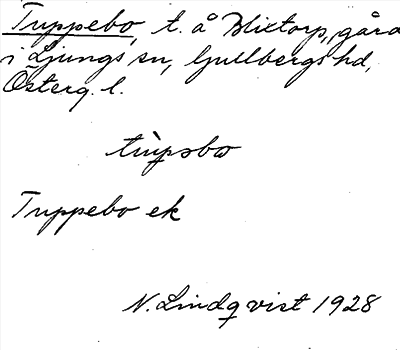 Truppebo, t. å Blixtorp, gård
i Ljungs sn, Gullbergs hd,
Österg. l.
Truppebo ek
N. Lindqvist 1928